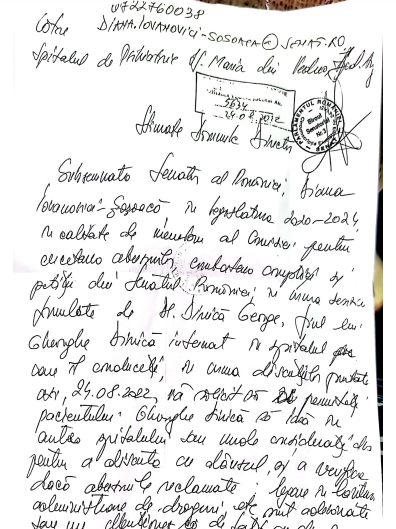 0722760038
Către DIANA.IOVANOVICI-SOSOACA@SENAT.RO
Spitalul de Psihiatrie Sf. Maria din Vedea, Jud. Ag
5634
24.08.2022
PARLAMENTUL ROMÂNIEI
Biroul
Senatorial
Nr.
Stimate Domnule Director
Subsemnata Senator al României, Diana
Iovanovici-Șoșoacă, în legislatura 2020-2024,
în calitate de membru al Comisiei pentru
cercetarea abuzurilor, combaterea corupției și
petiții din Senatul României, în urma sesizării
formulate de dl. Dincă George, fiul lui
Gheorghe Dincă internat în spitalul
care îl conduceți, în urma discuțiilor purtate
azi, 24.08.2022, vă solicit să permiteți
pacientului Gheorghe Dincă să iasă în
curtea spitalului sau unde considerați dvs
pentru a discuta cu dânsul, și a verifica
dacă abuzurile reclamate: legare în
administrare de droguri, etc sunt adevărate
sau nu